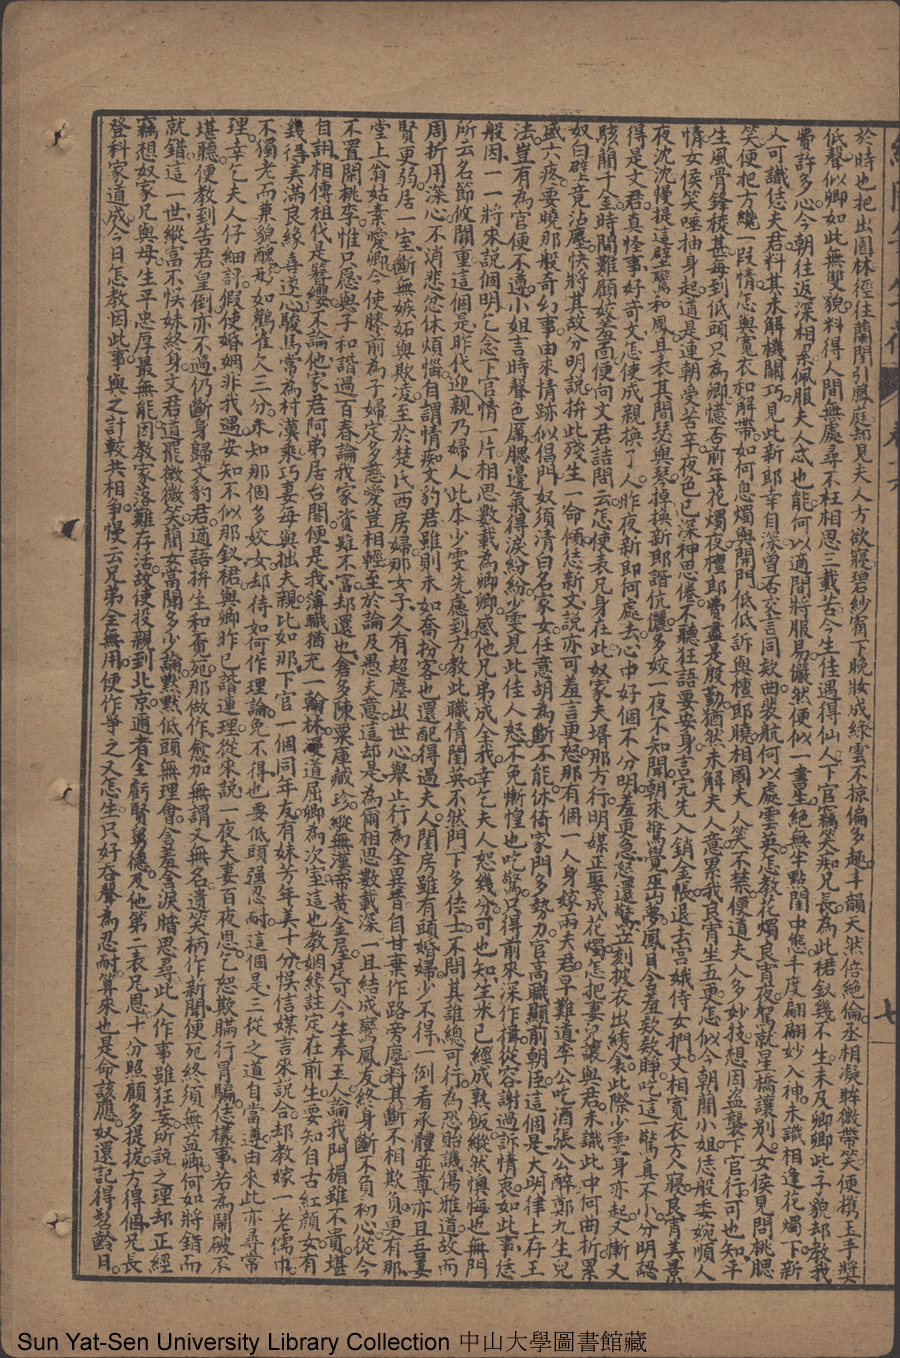 於時也把出園林徑往蘭閨引鳳庭却見夫人方欲寢碧紗窗下晚妝成綠雲不掠偏多趣丰韻天然倍絕倫丞相凝眸微帶笑便携玉手獎
低聲似卿如此無雙貌料得人間無處尋不枉相思三載苦今生佳遇得仙人下官竊笑痴兄長為此裙釵幾不生未及卿卿此子貌却教我
費許多心今朝往返深相系佩服夫人念也能何以適間將服易儼然便似一書生絕無半點閨中態丰度翩翩妙入神未識相逢花燭下新
人可識恁夫君料其未解機關巧見此新郎幸自深曾否交言同欵曲裴航何以處雲英怎教花燭良宵夜駕就星橋讓別人女侯見問桃腮
笑便把方纔一段情怎與寬衣和解帶如何息燭與開門低低訴與檀郎曉相國夫人笑不禁便道夫人多妙技想因盜襲下官行可也知平
生風骨鋒稜甚每到低頭只為卿憶否前年花燭夜檀郎費盡是殷勤猶然未解夫人意累我良宵坐五更怎似今朝蘭小姐恁般委婉順人
情女侯笑唾抽身起道是連朝受苦辛夜色已深神思倦不聽狂語要安身言完先入銷金帳退去宮娥侍女們文相寬衣方入寢良宵美景
夜沈沈慢提這壁鸞和鳳且表其間瑟與琴掉換新郎諧伉儷多姣一夜不知聞朝來驚覺巫山夢鳳目含羞欵欵睜吃這一驚真不小分明認
得是文君真怪事好奇文怎使成親換了人昨夜新郎何處去心中好個不分明羞更急怒還驚立刻披衣出綉衾此際少雯身亦起又慚又
駭開千金時間難顧姣羞面便向文君詰問云怎使表兄身在此奴家夫壻那方行明媒正娶成花燭怎把妻兒讓與君未識此中何曲折累
奴白璧竟沾塵快將其故分明說拚此殘生一命傾恁新文說亦可羞言更怒那有個一人身嫁兩夫君早難道李公吃酒張公醉鄭九生兒
盛六疼要曉那般奇幻事由來情跡似倡門奴須清白名家女任意胡為斷不能休倚家門多勢力官高職顯前朝臣這個是大明律上存王
法豈有為官便不遵小姐言時聲色厲腮邊氣得淚紛紛少雯見此佳人怒不免慚惶也吃驚只得前來深作揖從容謝過訴情衷如此事恁
般因一一將來說個明乞念下官情一片相思數載為卿卿感他兄弟成全我幸乞夫人恕幾分可也知生米已經成熟飯縱然懊悔也無門
所云名節攸關重這個是昨代迎親乃婦人此本少雯先慮到方教此職倩閨英不然門下多佳士不問其誰總可行為恐貽譏傷雅道故而
周折用深心不消悲忿休煩惱自謂情痴文豹君雖則未如喬扮客也還配得過夫人閨房雖有頭婚婦少不得一例看承體並尊亦且吾妻
賢更弱居一室斷無嫉妬與欺凌至於楚氏西房婦那女子久有超塵出世心舉止行為全異昔自甘棄作路旁塵料其斷不相欺負更有那
堂上翁姑素愛卿今使滕前為子婦定多慈愛豈相輕至於論及愚夫意這却是為兩相思數載深一旦結成鸞鳳友終身斷不負初心從今
不置閒桃李惟只愿與子和諧過百春論我家資雖不富却還也倉多陳粟庫藏珍縱無漢帝黃金屋足可今生奉玉人論我門楣雖不貴堪
自詡相傳祖代是簪纓不論他家君阿弟居台閣便是我薄職猶充一翰林漫道屈卿為次室這也教姻緣註定在前生要知自古紅顏女有
幾得美滿良緣喜遂心駿馬常為村漢乘巧妻每與拙夫親比如那下官一個同年友有妹芳年美十分悞信媒言來說合却教嫁一老儒巾
不獨老而兼貌醜好如鸛雀欠三分未知那個多姣女却待如何作理論免不得也要低頭强忍耐這個是三從之道自當遵由來此亦尋常
理幸乞夫人仔細評假使婚姻非我遇安知不似那釵裙與卿昨已諧連理從來說一夜夫妻百夜恩乞恕欺瞞行冒騙恁樣事若為闡破不
堪聽便教到告君皇倒亦不過仍斷身歸文豹君適語拚生和覓死那做作愈加無謂又無名遺笑柄作新聞便死終須無益卿何如將錯而
就錯這一世縱富不悞妹終身文君道罷微微笑蘭女當聞多少論默默低頭無理會含羞含淚暗思尋此人作事雖狂妄所說之理却正經
竊想奴家兄與母生平忠厚最無能因教家落難存活故使投親到北京適者全虧賢舅德及他第二表兄恩十分照顧多提拔方得個兄長
登科家道成今日怎教因此事與之計較共相爭慢云兄弟全無用便作爭之又怎生只好吞聲為忍耐算來也是命該應奴還記得髫齡日
七
Sun Yat-Sen University Library Collection 中山大學圖書館藏